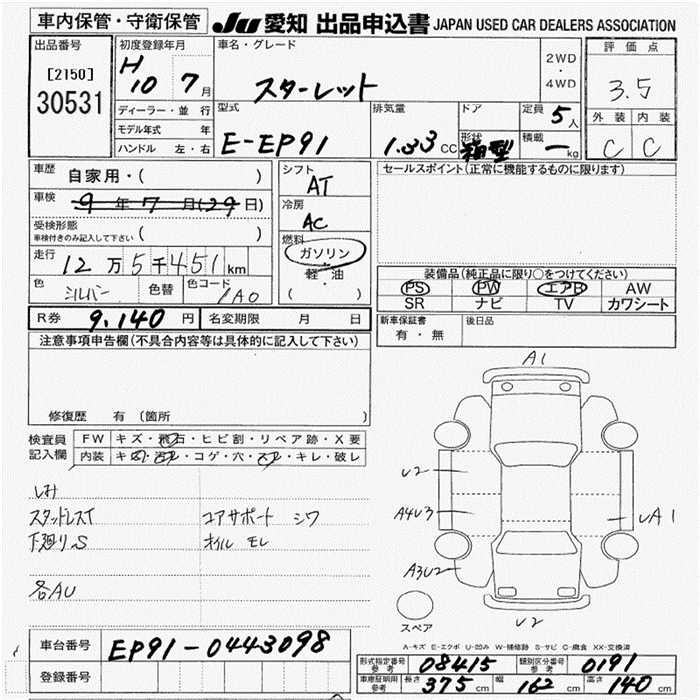 車内保管・守衛保管 JU 愛知 出品申込書 JAPAN USED CAR DEALERS ASSOCIATION
出品番号
[2150]
30531
初度登録年月
H 10 7月
ディーラー・並 行
モデル年式 年
ハンドル 左・右
車名・グレード
スターレット
2WD
・
4WD
型式
E-EP91
排気量
1.33 CC
ドア
形状
箱型
定員 5人
積載 ー kg
評 価 点
3.5
外 装 内 装
C C
車歴 自家用・( )
車検 9 年 7 月 (29日)
受検形態
車検付きのみ記入して下さい ( )
走行 12万5千451km
色 シルバー 色替 色コード 1A0
シフト
AT
冷房
AC
燃料
ガソリン
軽・油
( )
セールスポイント(正常に機能するものに限ります)
装備品(純正品に限り○をつけてください)
PS PW エアB AW
SR ナビ TV カワシート
R券 9.140 円 名変期限 月 日
新車保証書
有・無
後日品
注意事項申告欄(不具合内容等は具体的に記入して下さい)
修復歴 有(箇所 )
検査員
記入欄
FW キズ・飛石・ヒビ割・リペア跡・X要
内装 キズ・汚れ・コゲ・穴・スレ・キレ・破レ
シミ
スタッドレスT コアサポート シワ
下廻りS オイル モレ
各AU
A1
U2
A4U3
UA1
A3U2
U2
スペア
A-キズ E-エクボ U-凹み W-補修跡 S-サビ C-腐食 XX-交換済
車台番号 EP91-0443098
登録番号
型式指定番号
参考 08415
類別区分番号
参考 0191
車庫証明用
参考 長さ 375cm 幅 162cm 高さ 140cm